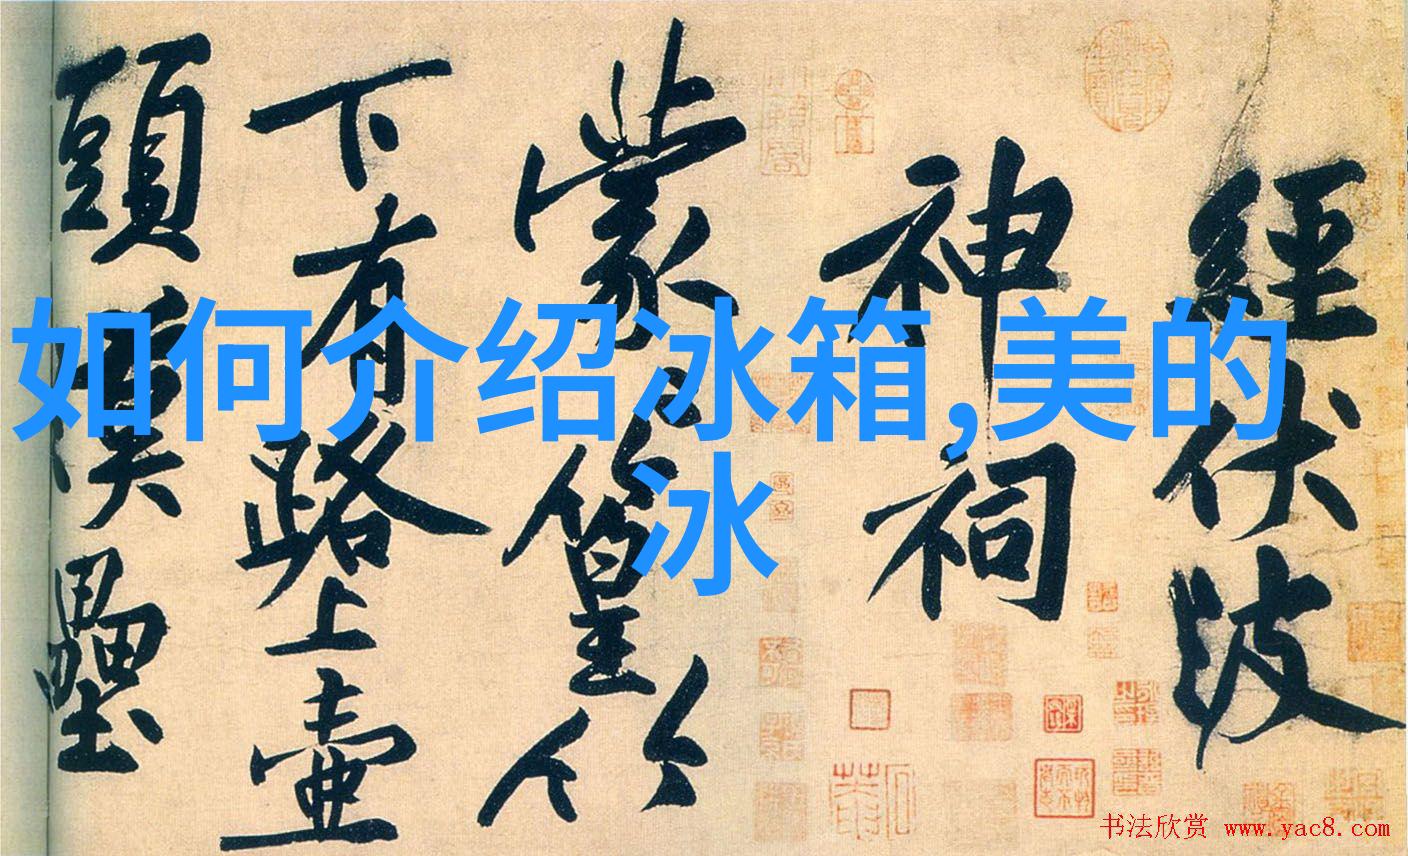 經伏波
神祠
蒙蒙篁竹
下有路上壺
頭漢壘
如何介绍冰箱,美的
冰
书法欣赏 www.yac8.com